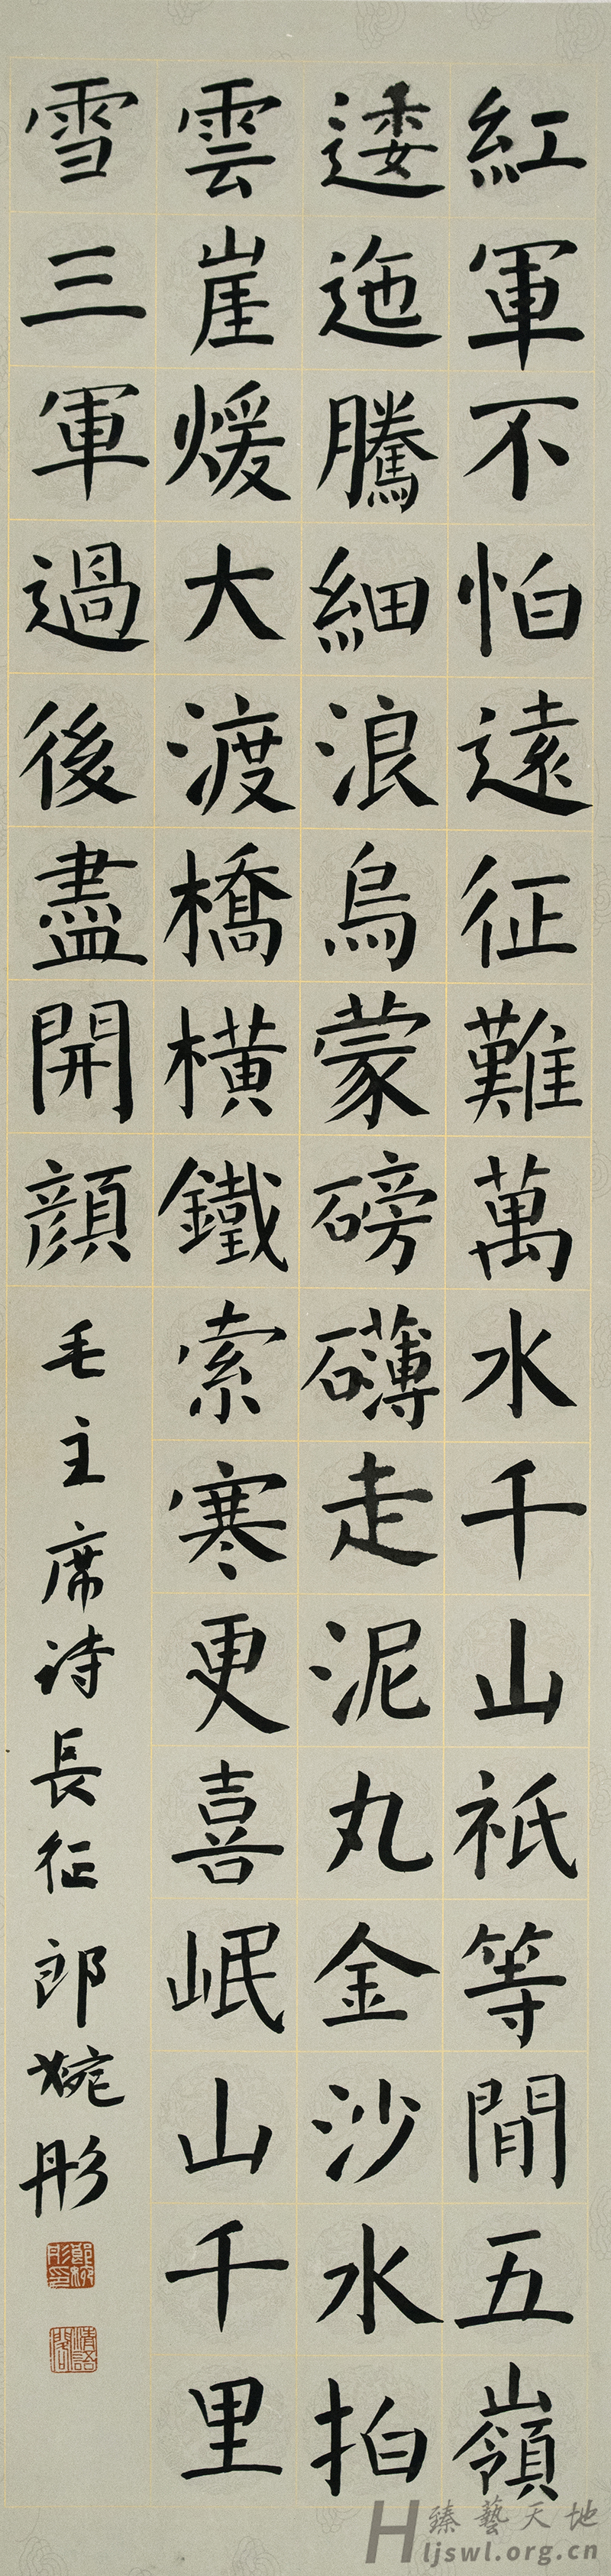 紅軍不怕遠征難萬水千山祇等閒五嶺
逶迤騰細浪烏蒙磅礴走泥丸金沙水拍
雲崖煖大渡橋横鐵索寒更喜岷山千里
雪三軍過後盡開顔 毛主席诗長征 郎婉彤
臻藝天地
Hljswl.org.cn